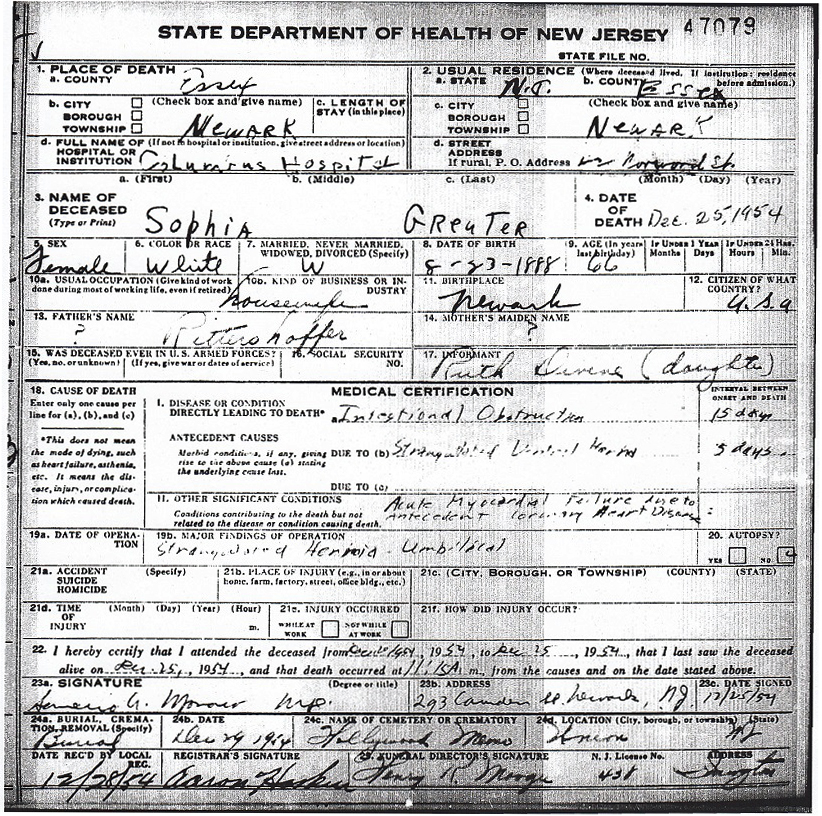 STATE DEPARTMENT OF HEALTH OF NEW JERSEY 47079
STATE FILE NO.
1. PLACE OF DEATH
a. COUNTY Essex
2. USUAL RESIDENCE (Where deceased lived. If institution: residence before admission.)
a. STATE N.J. b. COUNTY Essex
b. CITY BOROUGH TOWNSHIP (Check box and give name) Newark
c. LENGTH OF STAY (in this place)
c. CITY BOROUGH TOWNSHIP (Check box and give name) Newark
d. FULL NAME OF HOSPITAL OR INSTITUTION (If not in hospital or institution, give street address or location) Columbus Hospital
d. STREET ADDRESS If rural, P. O. Address Norwood St.
a. (First) b. (Middle) c. (Last) (Month) (Day) (Year)
3. NAME OF DECEASED (Type or Print) Sophia Greuter
4. DATE OF DEATH Dec. 25, 1954
5. SEX Female
6. COLOR OR RACE White
7. MARRIED, NEVER MARRIED, WIDOWED, DIVORCED (Specify) W
8. DATE OF BIRTH 8-23-1888
9. AGE (In years last birthday) 66
If Under 1 Year Months Days
If Under 24 Hrs. Hours Min.
10a. USUAL OCCUPATION (Give kind of work done during most of working life, even if retired) housewife
10b. KIND OF BUSINESS OR INDUSTRY
11. BIRTHPLACE Newark
12. CITIZEN OF WHAT COUNTRY? U.S.a
13. FATHER'S NAME ? Rittershoffer
14. MOTHER'S MAIDEN NAME ?
15. WAS DECEASED EVER IN U.S. ARMED FORCES? (Yes, no, or unknown) (If yes, give war or dates of service)
16. SOCIAL SECURITY NO.
17. INFORMANT Ruth Devine (daughter)
18. CAUSE OF DEATH
Enter only one cause per line for (a), (b), and (c)
*This does not mean the mode of dying, such as heart failure, asthenia, etc. It means the disease, injury, or complication which caused death.
MEDICAL CERTIFICATION
INTERVAL BETWEEN ONSET AND DEATH
I. DISEASE OR CONDITION DIRECTLY LEADING TO DEATH* a Intestional Obstruction 15 days
ANTECEDENT CAUSES
Morbid conditions, if any, giving rise to the above cause (a) stating the underlying cause last.
DUE TO (b) Strangulated Ventral Hernia 5 days
DUE TO (c)
II. OTHER SIGNIFICANT CONDITIONS
Conditions contributing to the death but not related to the disease or condition causing death.
Acute Myocardial Failure due to
antecedent Coronary Heart Disease
19a. DATE OF OPERATION
19b. MAJOR FINDINGS OF OPERATION
Strangulated Hernia - Umbilical
20. AUTOPSY?
YES NO
21a. ACCIDENT SUICIDE HOMICIDE (Specify)
21b. PLACE OF INJURY (e.g., in or about home, farm, factory, street, office bldg., etc.)
21c. (CITY, BOROUGH, OR TOWNSHIP) (COUNTY) (STATE)
21d. TIME OF INJURY (Month) (Day) (Year) (Hour) m.
21e. INJURY OCCURRED WHILE AT WORK NOT WHILE AT WORK
21f. HOW DID INJURY OCCUR?
22. I hereby certify that I attended the deceased from , 1954, to Dec. 25, 1954, that I last saw the deceased
alive on Dec. 25, 1954, and that death occurred at 11:15A m., from the causes and on the date stated above.
23a. SIGNATURE (Degree or title) M.D.
23b. ADDRESS 293 Camden St. Newark, NJ.
23c. DATE SIGNED 12/25/54
24a. BURIAL, CREMATION, REMOVAL (Specify) Burial
24b. DATE Dec 29 1954
24c. NAME OF CEMETERY OR CREMATORY Hollywood Memo
24d. LOCATION (City, borough, or township) (State) Union NJ
DATE REC'D BY LOCAL REG. 12/28/54
REGISTRAR'S SIGNATURE Aaron Haskin
25. FUNERAL DIRECTOR'S SIGNATURE Henry R.
N. J. License No. 438
ADDRESS Irvington